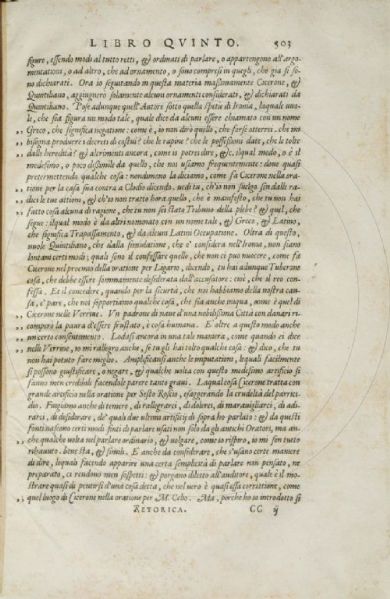 LIBRO QVINTO. 503
figure, essendo modi al tutto retti, & ordinati di parlare, o appartengono all'argo-
mentationi, o ad altro, che ad ornamento, o sono compresi in quegli, che già si so-
no dichiarati. Ora io seguitando in questa materia massimamente Cicerone, &
Quintiliano, aggiugnerò solamente alcuni ornamenti considerati, & dichiarati da
Quintiliano. Pose adunque quest'Autore sotto questa spetie di Ironia, laquale vuo-
le, che sia figura un modo tale, quale dice da alcuni essere chiamato con un nome
Greco, che significa negatione: come è, io non dirò quello, che forse
bisogna produrre i decreti di costui? che le rapine? che le possessioni date, che le tolte
dalle heredità? & altrimenti ancora, come si potrei dire, &c. ilqual modo, o è il
medesimo, o poco dissimile da quello, che noi usiamo frequentemente: dove quasi
pretermettendo qualche cosa: nondimeno la diciamo, come fa Cicerone nella ora-
tione per la casa sua contra a Clodio dicendo. vedi tu, ch'io non fuolgo sin dalle ra-
dici le tue attioni, & ch'io non tratto hora quello, che è manifesto, che tu non hai
fatto cosa alcuna di ragione, che tu non sei stato Tribuno della plebe? & quel, che
segue: ilqual modo è da altri nominato con un nome tale, & Greco, & Latino,
che significa Trapassamento, & da alcuni Latini Occupatione. Oltra di questo,
vuole Quintiliano, che dalla simulatione, che è considera nell'Ironia, non siano
lontani certi modi; quali sono il confessare quello, che non ci può nuocere, come fa
Cicerone nel proemio della oratione per Ligario, dicendo, tu hai adunque Tuberone
cosa, che debbe essere sommamente desiderata dall'accusatore: cioè, che il reo con-
fessa. Et il concedere, quando per la sicurtà, che noi habbiamo della nostra cau-
sa, è pare, che noi sopportiamo qualche cosa, che sia anche iniqua, come è quel di
Cicerone nelle Verrine. Un padrone di nave d'una nobilissima Città con danari ri-
comperò la paura d'essere frustato, è cosa humana. E oltre a questo modo anche
un certo consentimento. Lodasi ancora in una tale maniera, come quando ei dice
nelle Verrine, io mi rallegro anche, se tu gli hai tolto qualche cosa: & dico, che tu
non hai potuto fare meglio. Amplificansi anche le imputationi, lequali facilmente
si possono giustificare, o negare, & qualche volta con questo medesimo artificio si
fanno men credibili facendole parere tanto gravi. Laqual cosa Cicerone tratta con
grande artificio nella oratione per Sesto Roscio, essagerando la crudeltà del parrici-
dio. Fingiamo anche di temere, di rallegrarci, di dolerci, di maravigliarci, di adi-
rarci, di desiderare, de' quali due ultimi artificij di sopra ho parlato: & da questi
fonti nascono certi modi finti di parlare usati non solo da gli antichi Oratori, ma an-
che qualche volta nel parlare ordinario, & volgare, come io respiro, io mi son tutto
rihavuto. bene sta, & simili. E anche da considerare, che s'usano certe maniere
di dire, lequali facendo apparire una certa semplicità di parlare non pensato, ne
preparato, ci rendono men sospetti: & porgano diletto all'auditore, quale è il mo-
strare quasi di pentirsi d'una cosa detta, che nel vero è quasi essa correttione, come
quel luogo di Cicerone nella oratione per M. Celio. Ma, perche ho io introdotto si
RETORICA. CC ij